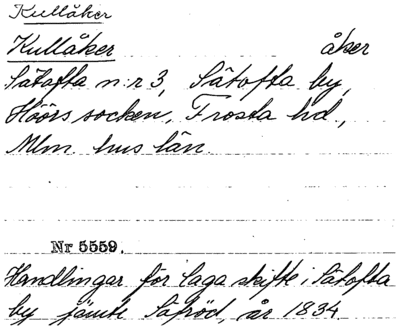 Kullåker
Kullåker åker
Sätofta n:r 3, Sätofta by,
Höörs socken, Frosta hd.,
Mlm. hus län.
Nr 5559.
Handlingar för laga skifte i Sätofta
by jämte Säfröd, år 1834.